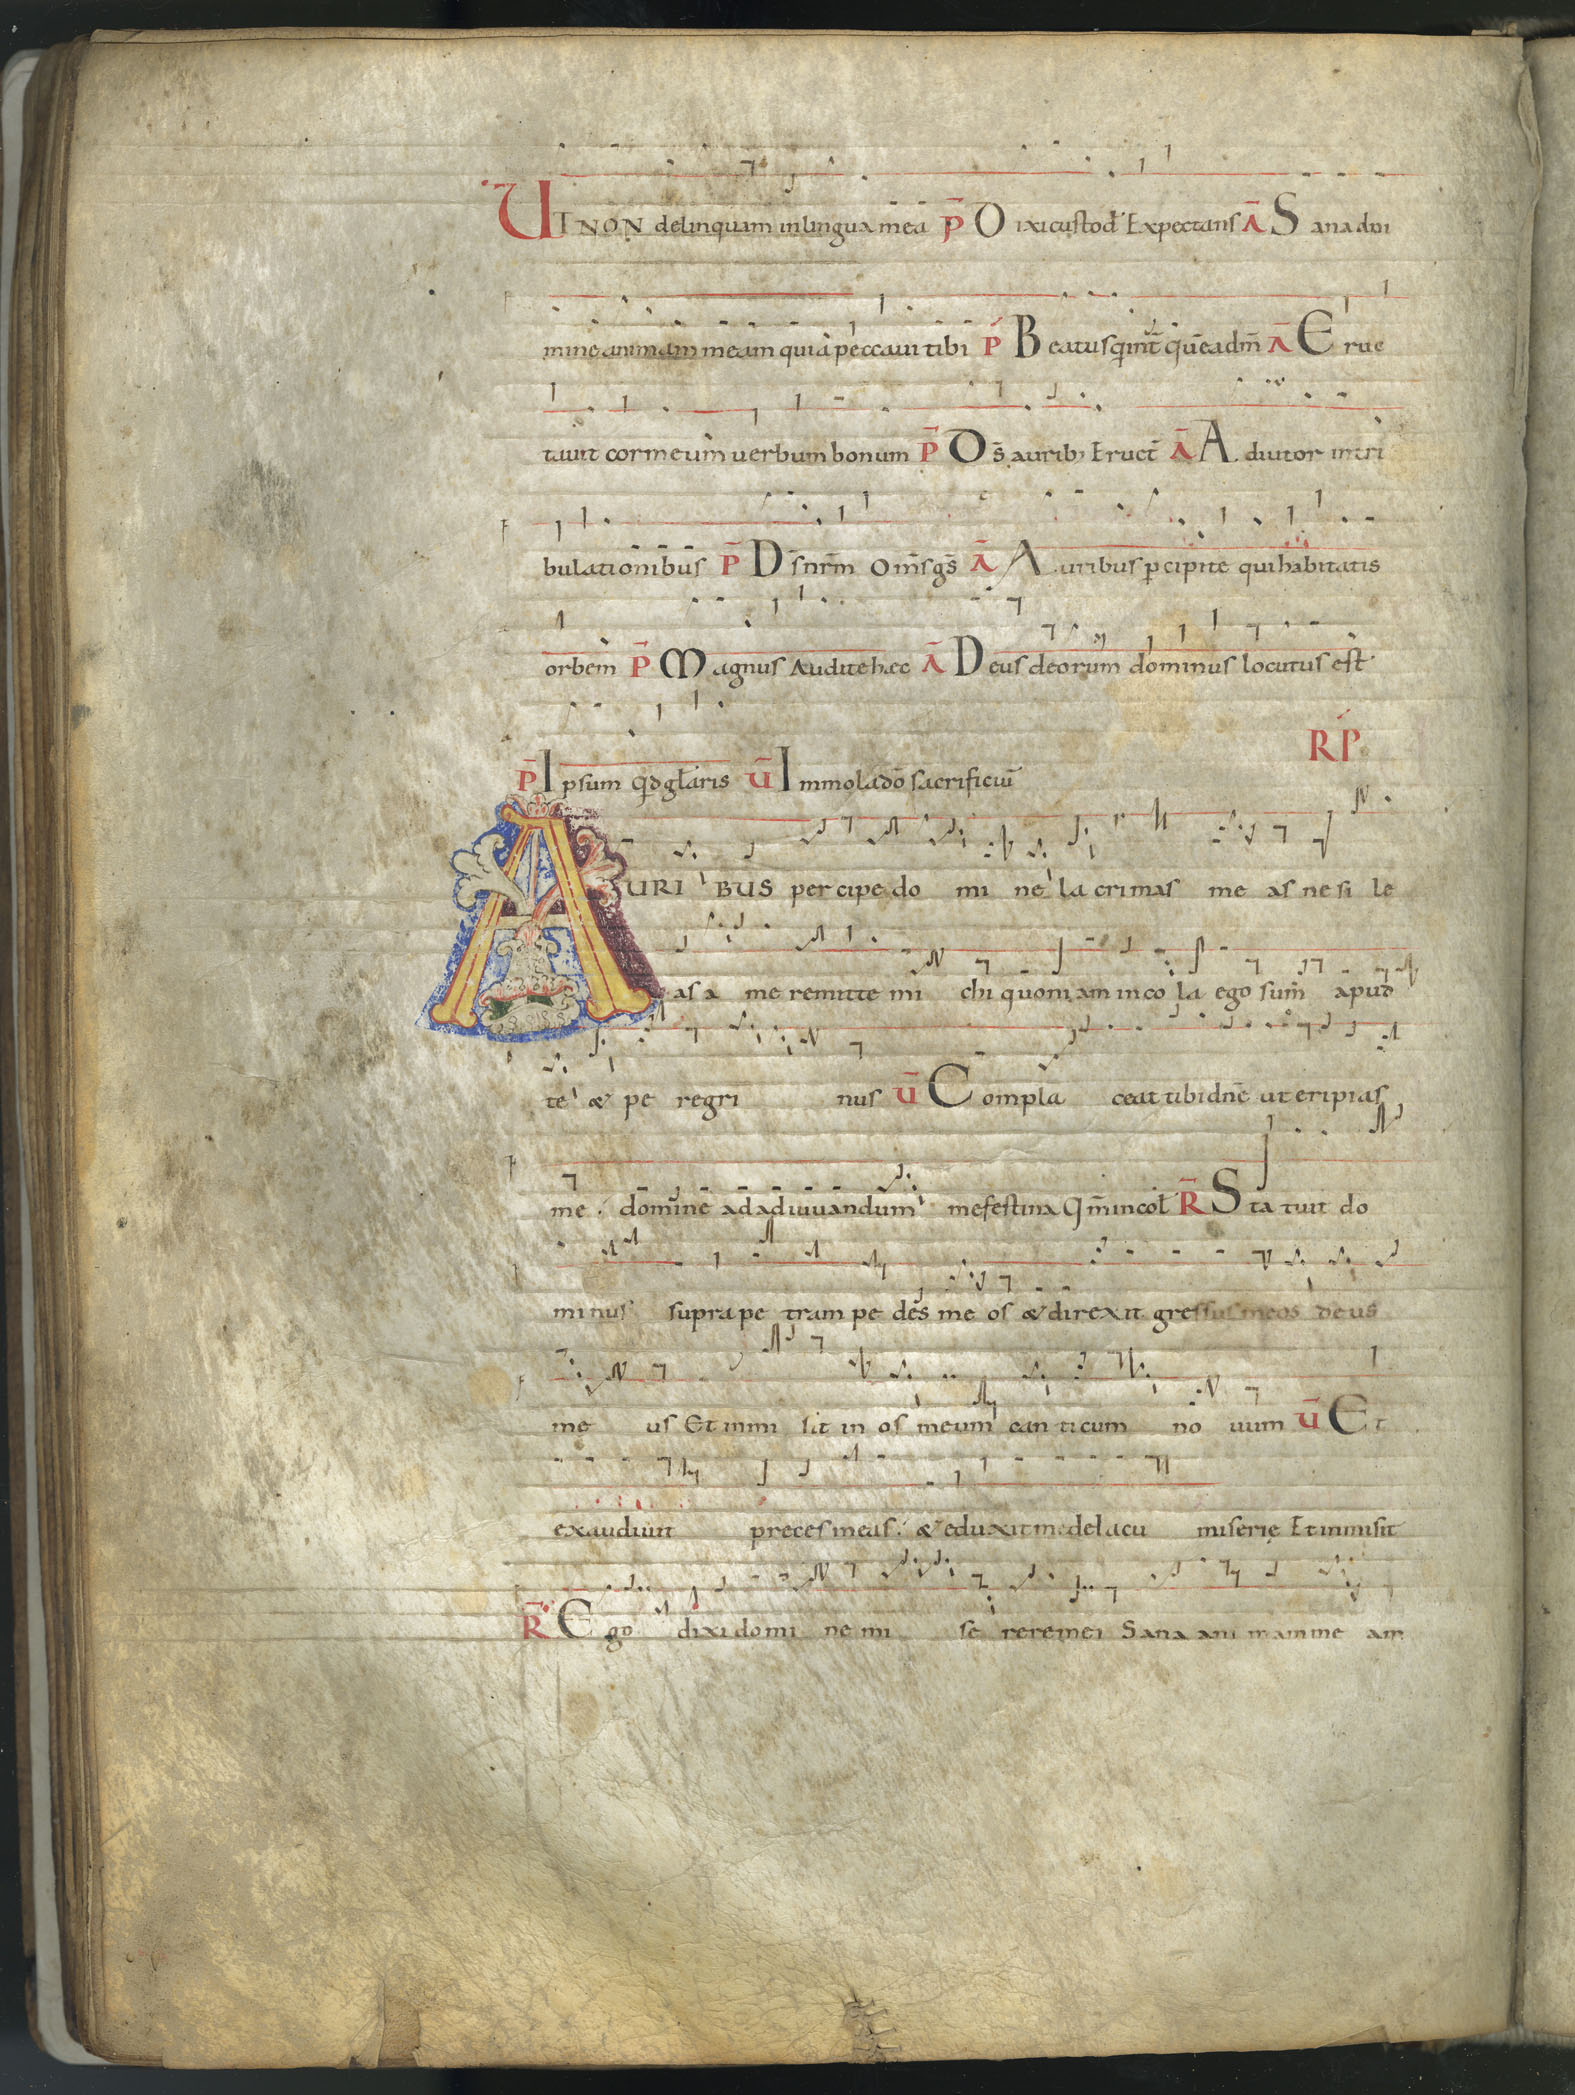 UT NON delinquam in lingua mea P̄ Dixi custod̄ Expectans Ā Sana dm̄i
ne animam meam quia peccaui tibi P̄ Beatus q̄ int̄ quēadm̄ Ā Erue
tauit cor meum uerbum bonum P̄ Ds̄ aurib; Eruct̄ Ā Adiutor in tri
bulationibus P̄ Ds̄ nrm̄ Om̄s gs̄ Ā Auribus percipite qui habitatis
orbem P̄ Magnus Audite hec Ā Deus deorum dominus locutus est
P̄ Ipsum qd gl̄aris Ū Immola dō sacrificiū RP̄
AURIBUS per cipe do mi ne la crimas me as ne si le
as a me remitte mi chi quoniam inco la ego sum apud
te & pe regri nus Ū Compla ceat tibi dn̄e ut eripias
me. domine ad adiuuandum me festina Qm̄ incol̄ R̄ Sta tuit do
minus supra pe tram pe des me os & direxit gressus meos deus
me us Et inmi sit in os meum can ticum no uum Ū Et
exaudiuit preces meas. & eduxit me de lacu miserię Et inmisit
R̄ Ego dixi domi ne mi se rere mei Sana ani mam me am